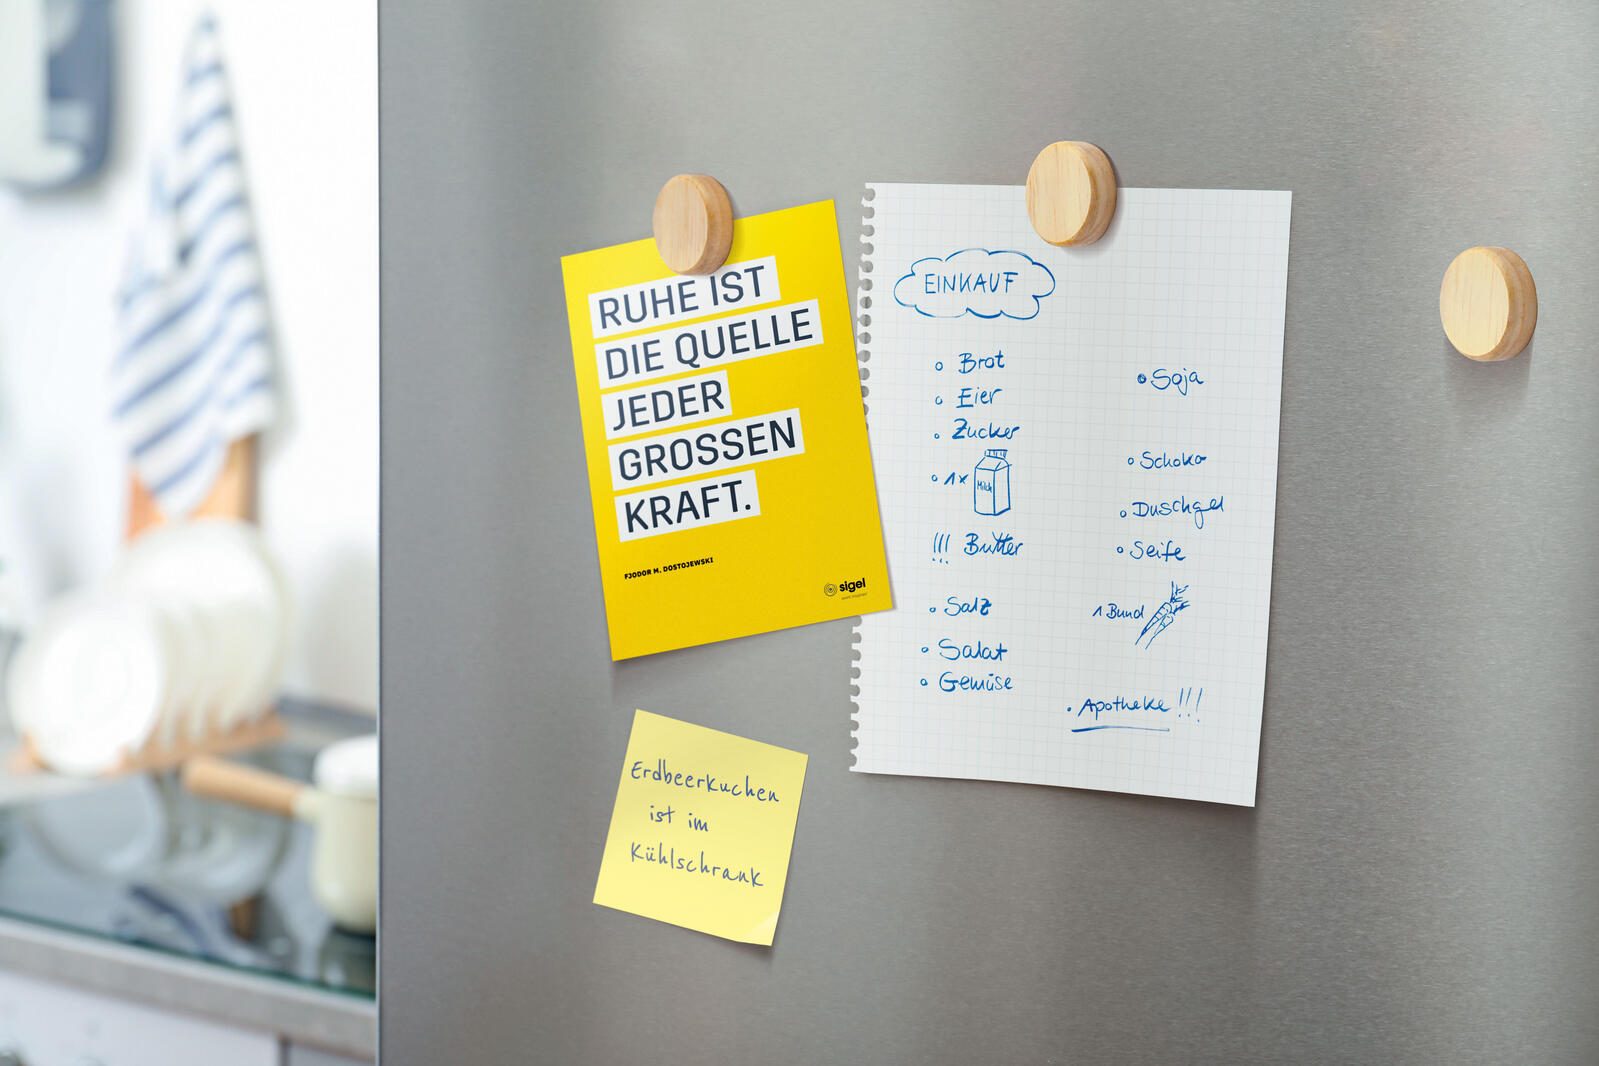 RUHE IST
DIE QUELLE
JEDER
GROSSEN
KRAFT.
FJODOR M. DOSTOJEWSKI
sigel
EINKAUF
Brot
Eier
Zucker
1x Milch
!!! Butter
Salz
Salat
Gemüse
Soja
Schoko
Duschgel
Seife
1 Bund
Apotheke !!!
Erdbeerkuchen
ist im
Kühlschrank